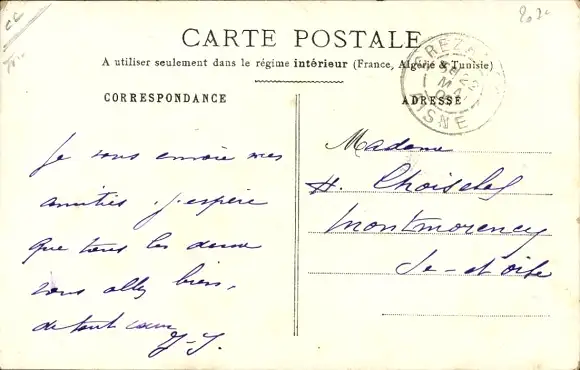 CARTE POSTALE
A utiliser seulement dans le régime intérieur (France, Algérie & Tunisie)
CORRESPONDANCE
ADRESSE
AISNE
Je vous envoie mes
amitiés . j'espère
que tous les deux
vous allez bien,
de tout cœur
Madame
H.
Montmorency
Se-et-Oise